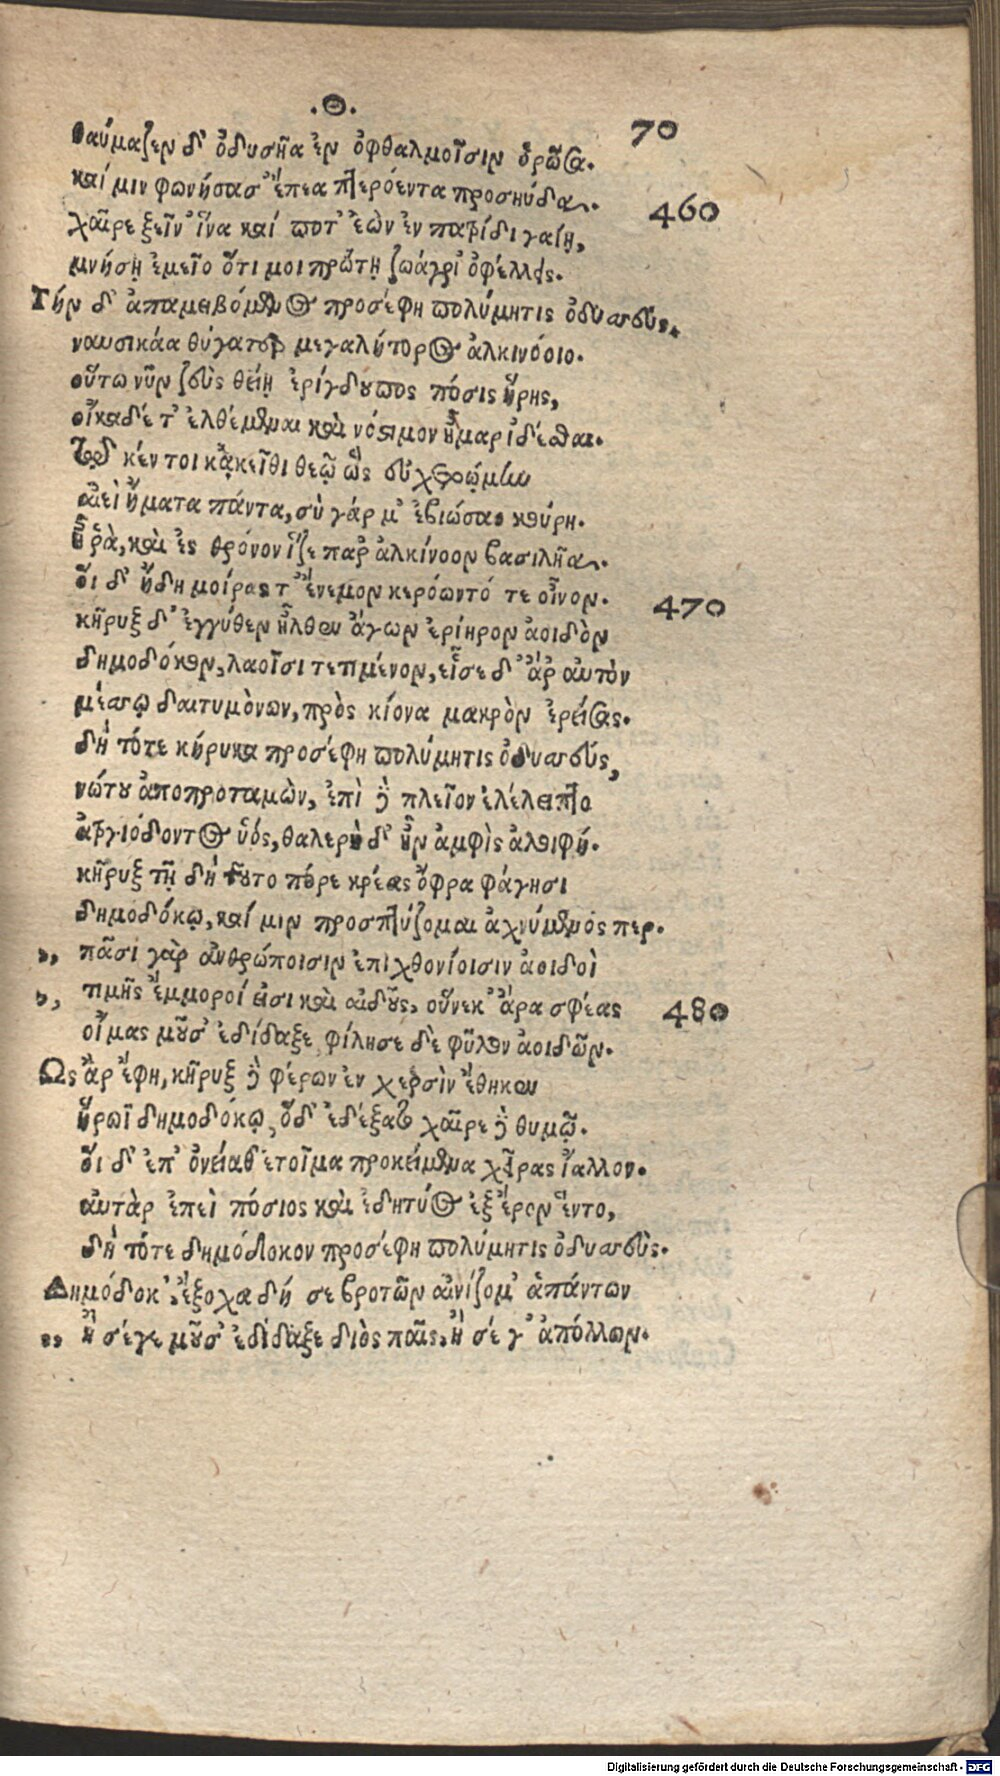 .Θ.
70
θαύμαζεν δ' ὀδυσῆα ἐν ὀφθαλμοῖσιν ὁρῶσα.
καί μιν φωνήσασ' ἔπεα πτερόεντα προσηύδα.
460
χαῖρε ξεῖν' ἵνα καί ποτ' ἐὼν ἐν πατρίδι γαίῃ,
μνήσῃ ἐμεῖο ὅτι μοι πρώτῃ ζωάγρι' ὀφέλλεις.
Τήν δ' ἀπαμειβόμενος προσέφη πολύμητις ὀδυσσεύς.
ναυσικάα θύγατερ μεγαλήτορος ἀλκινόοιο.
οὕτω νῦν ζεὺς θείη ἐρίγδουπος πόσις ἥρης,
οἴκαδέ τ' ἐλθέμεναι καὶ νόστιμον ἦμαρ ἰδέσθαι.
τῷ κέν τοι κᾀκεῖθι θεῷ ὣς εὐχετοῴμην
αἰεὶ ἤματα πάντα, σὺ γάρ μ' ἐβιώσαο κούρη.
ἦ ῥὰ, καὶ ἐς θρόνον ἷζε παρ' ἀλκίνοον βασιλῆα.
οἵ δ' ἤδη μοίρας τ' ἔνεμον κερόωντό τε οἶνον.
470
κῆρυξ δ' ἐγγύθεν ἦλθεν ἄγων ἐρίηρον ἀοιδὸν
δημοδόκον, λαοῖσι τετιμένον, εἷσε δ' ἄρ' αὐτὸν
μέσσῳ δαιτυμὸνων, πρὸς κίονα μακρὸν ἐρείσας.
δὴ τότε κήρυκα προσέφη πολύμητις ὀδυσσεύς,
νώτου ἀποπροταμὼν, ἐπὶ δὲ πλεῖον ἐλέλειπτο
ἀργιόδοντος ὑός, θαλερὴ δ' ἦν ἀμφὶς ἀλοιφή.
κῆρυξ τῇ δὴ τοῦτο πόρε κρέας ὄφρα φάγησι
δημοδόκῳ, καί μιν προσπτύξομαι ἀχνύμενός περ.
,, πᾶσι γὰρ ἀνθρώποισιν ἐπιχθονίοισιν ἀοιδοὶ
,, τιμῆς ἔμμοροί εἰσι καὶ αἰδοῦς, οὕνεκ' ἄρα σφέας
480
οἴμας μοῦσ' ἐδίδαξε, φίλησε δὲ φῦλον ἀοιδῶν.
Ως ἄρ' ἔφη, κῆρυξ δὲ φέρων ἐν χερσὶν ἔθηκεν
ἥρωϊ δημοδόκῳ, ὅδ' ἐδέξατο χαῖρε δὲ θυμῷ.
οἵ δ' ἐπ' ὀνείαθ' ἑτοῖμα προκείμενα χεῖρας ἴαλλον.
αὐτὰρ ἐπεὶ πόσιος καὶ ἐδητύος ἐξ ἔρον ἕντο,
δὴ τότε δημόδοκον προσέφη πολύμητις ὀδυσσεὺς.
Δημόδοκ', ἔξοχα δή σε βροτῶν αἰνίζομ' ἁπάντων
,, ἢ σέγε μοῦσ' ἐδίδαξε διὸς παῖς, ἢ σέ γ' ἀπόλλων.
Digitalisierung gefördert durch die Deutsche Forschungsgemeinschaft - DFG